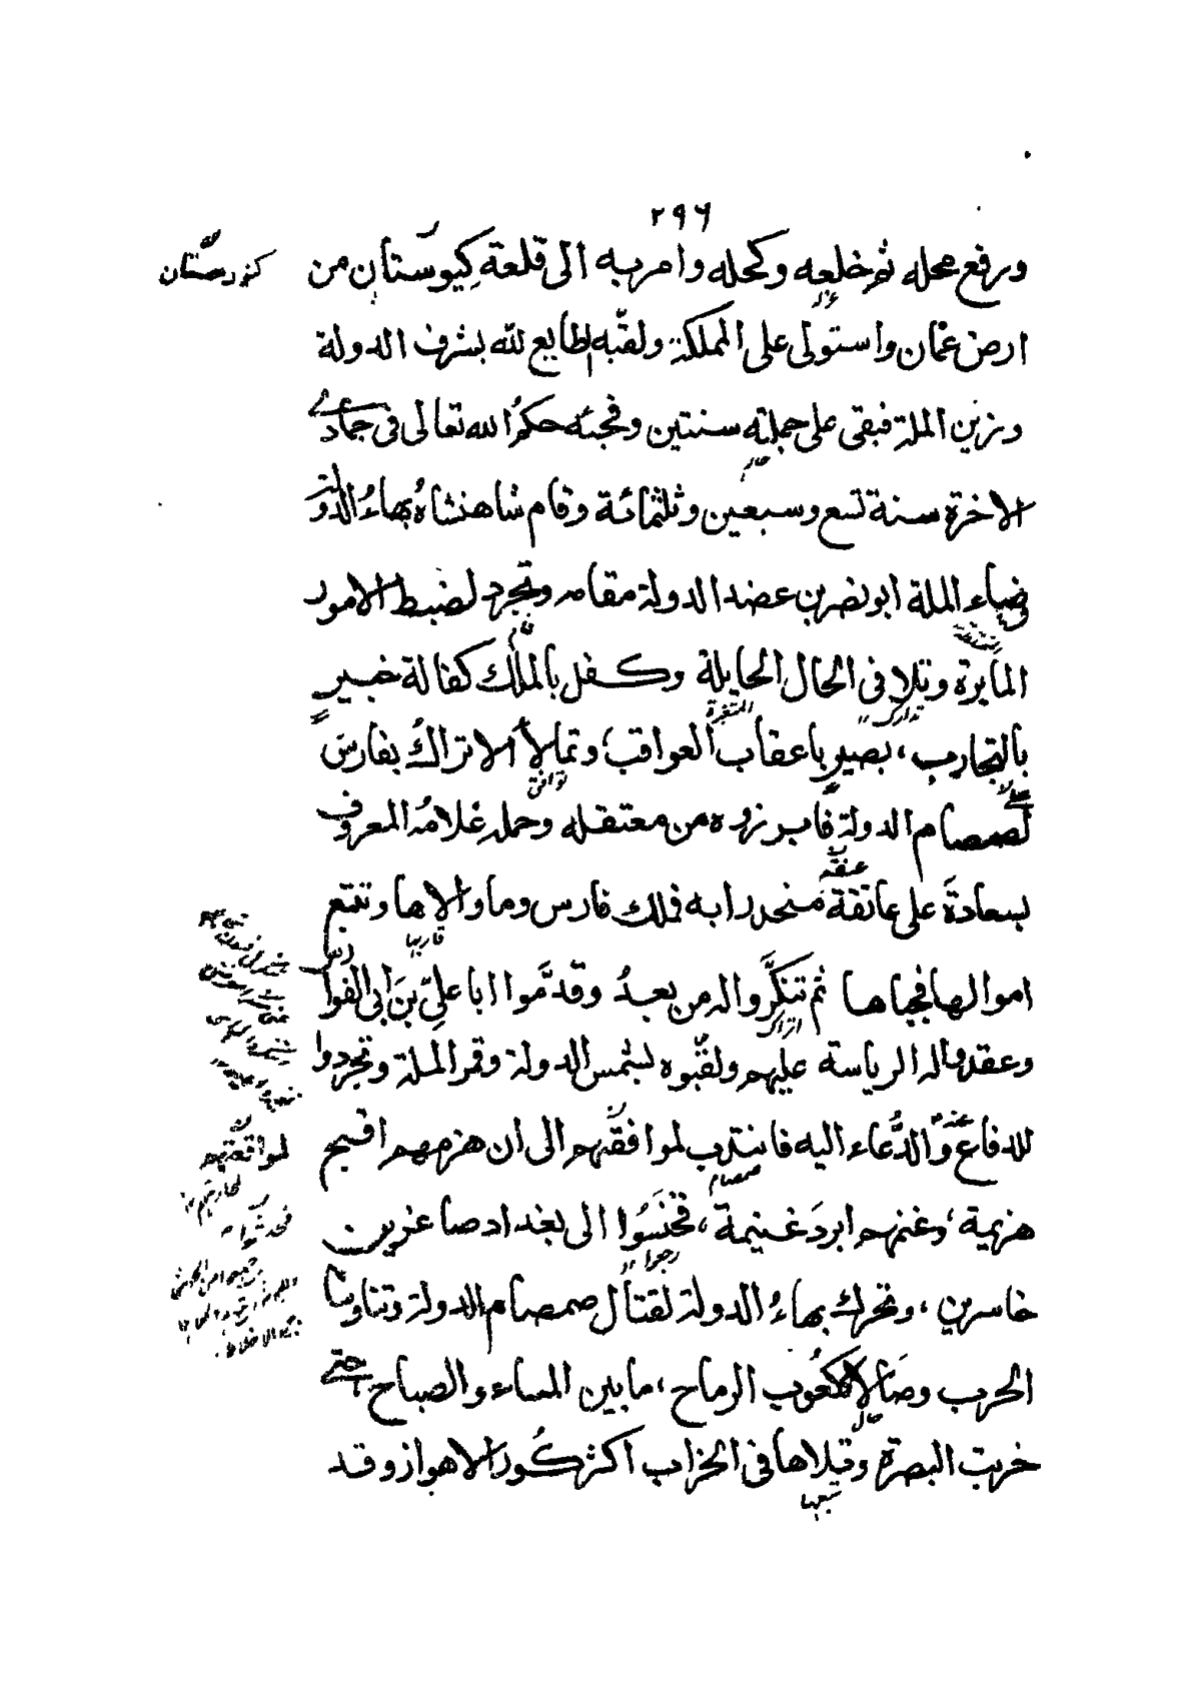 ٢٩٦
ورفع محله ثم خلعه وكحله وامر به الى قلعة كيوستان من
ارض عمان واستولى على المملكة ولقبه الطايع لله بشرف الدولة
وزين الملة فبقى على جملته سنتين وفجئه حكم الله تعالى فى جمادى
الاخرة سنة تسع وسبعين وثلثمائة وقام شاهنشاه بهاء الدولة
ضياء الملة ابو نصر بن عضد الدولة مقامه وتجرد لضبط الامور
المايرة وتلافى الحال الحايلة وكفل بالملك كفالة خبير
بالتجارب، بصير باعقاب العواقب، وتمالأ الاتراك بفارس
لصمصام الدولة فابرزوه من معتقله وحمله غلامه المعروف
بسعادة على عاتقة منحدرا به فملك فارس وما والاها وتتبع
اموالها فجباها ثم تنكروا له من بعد وقدموا ابا على بن ابى الفوارس
وعقدوا له الرياسة عليهم ولقبوه بشمس الدولة وقمر الملة وتجردوا
للدفاع عنه والدعاء اليه فانتدب لموافقتهم الى ان هزمهم اقبح
هزيمة، وغنمهم ابرد غنيمة، فخنسوا الى بغداد صاغرين
خاسرين، وتحرك بهاء الدولة لقتال صمصام الدولة وتناوبا
الحرب وصالا بكعوب الرماح، ما بين المساء والصباح حتى
خربت البصرة وتلاها فى الخراب اكثر كور الاهواز وقد
عزله
حاله
قام
المتغيرة
تدارك
توافق
على
عنقه
قاربها
اتراك
صمصام
رجعوا
حال
تبعها
لمواقعتهم